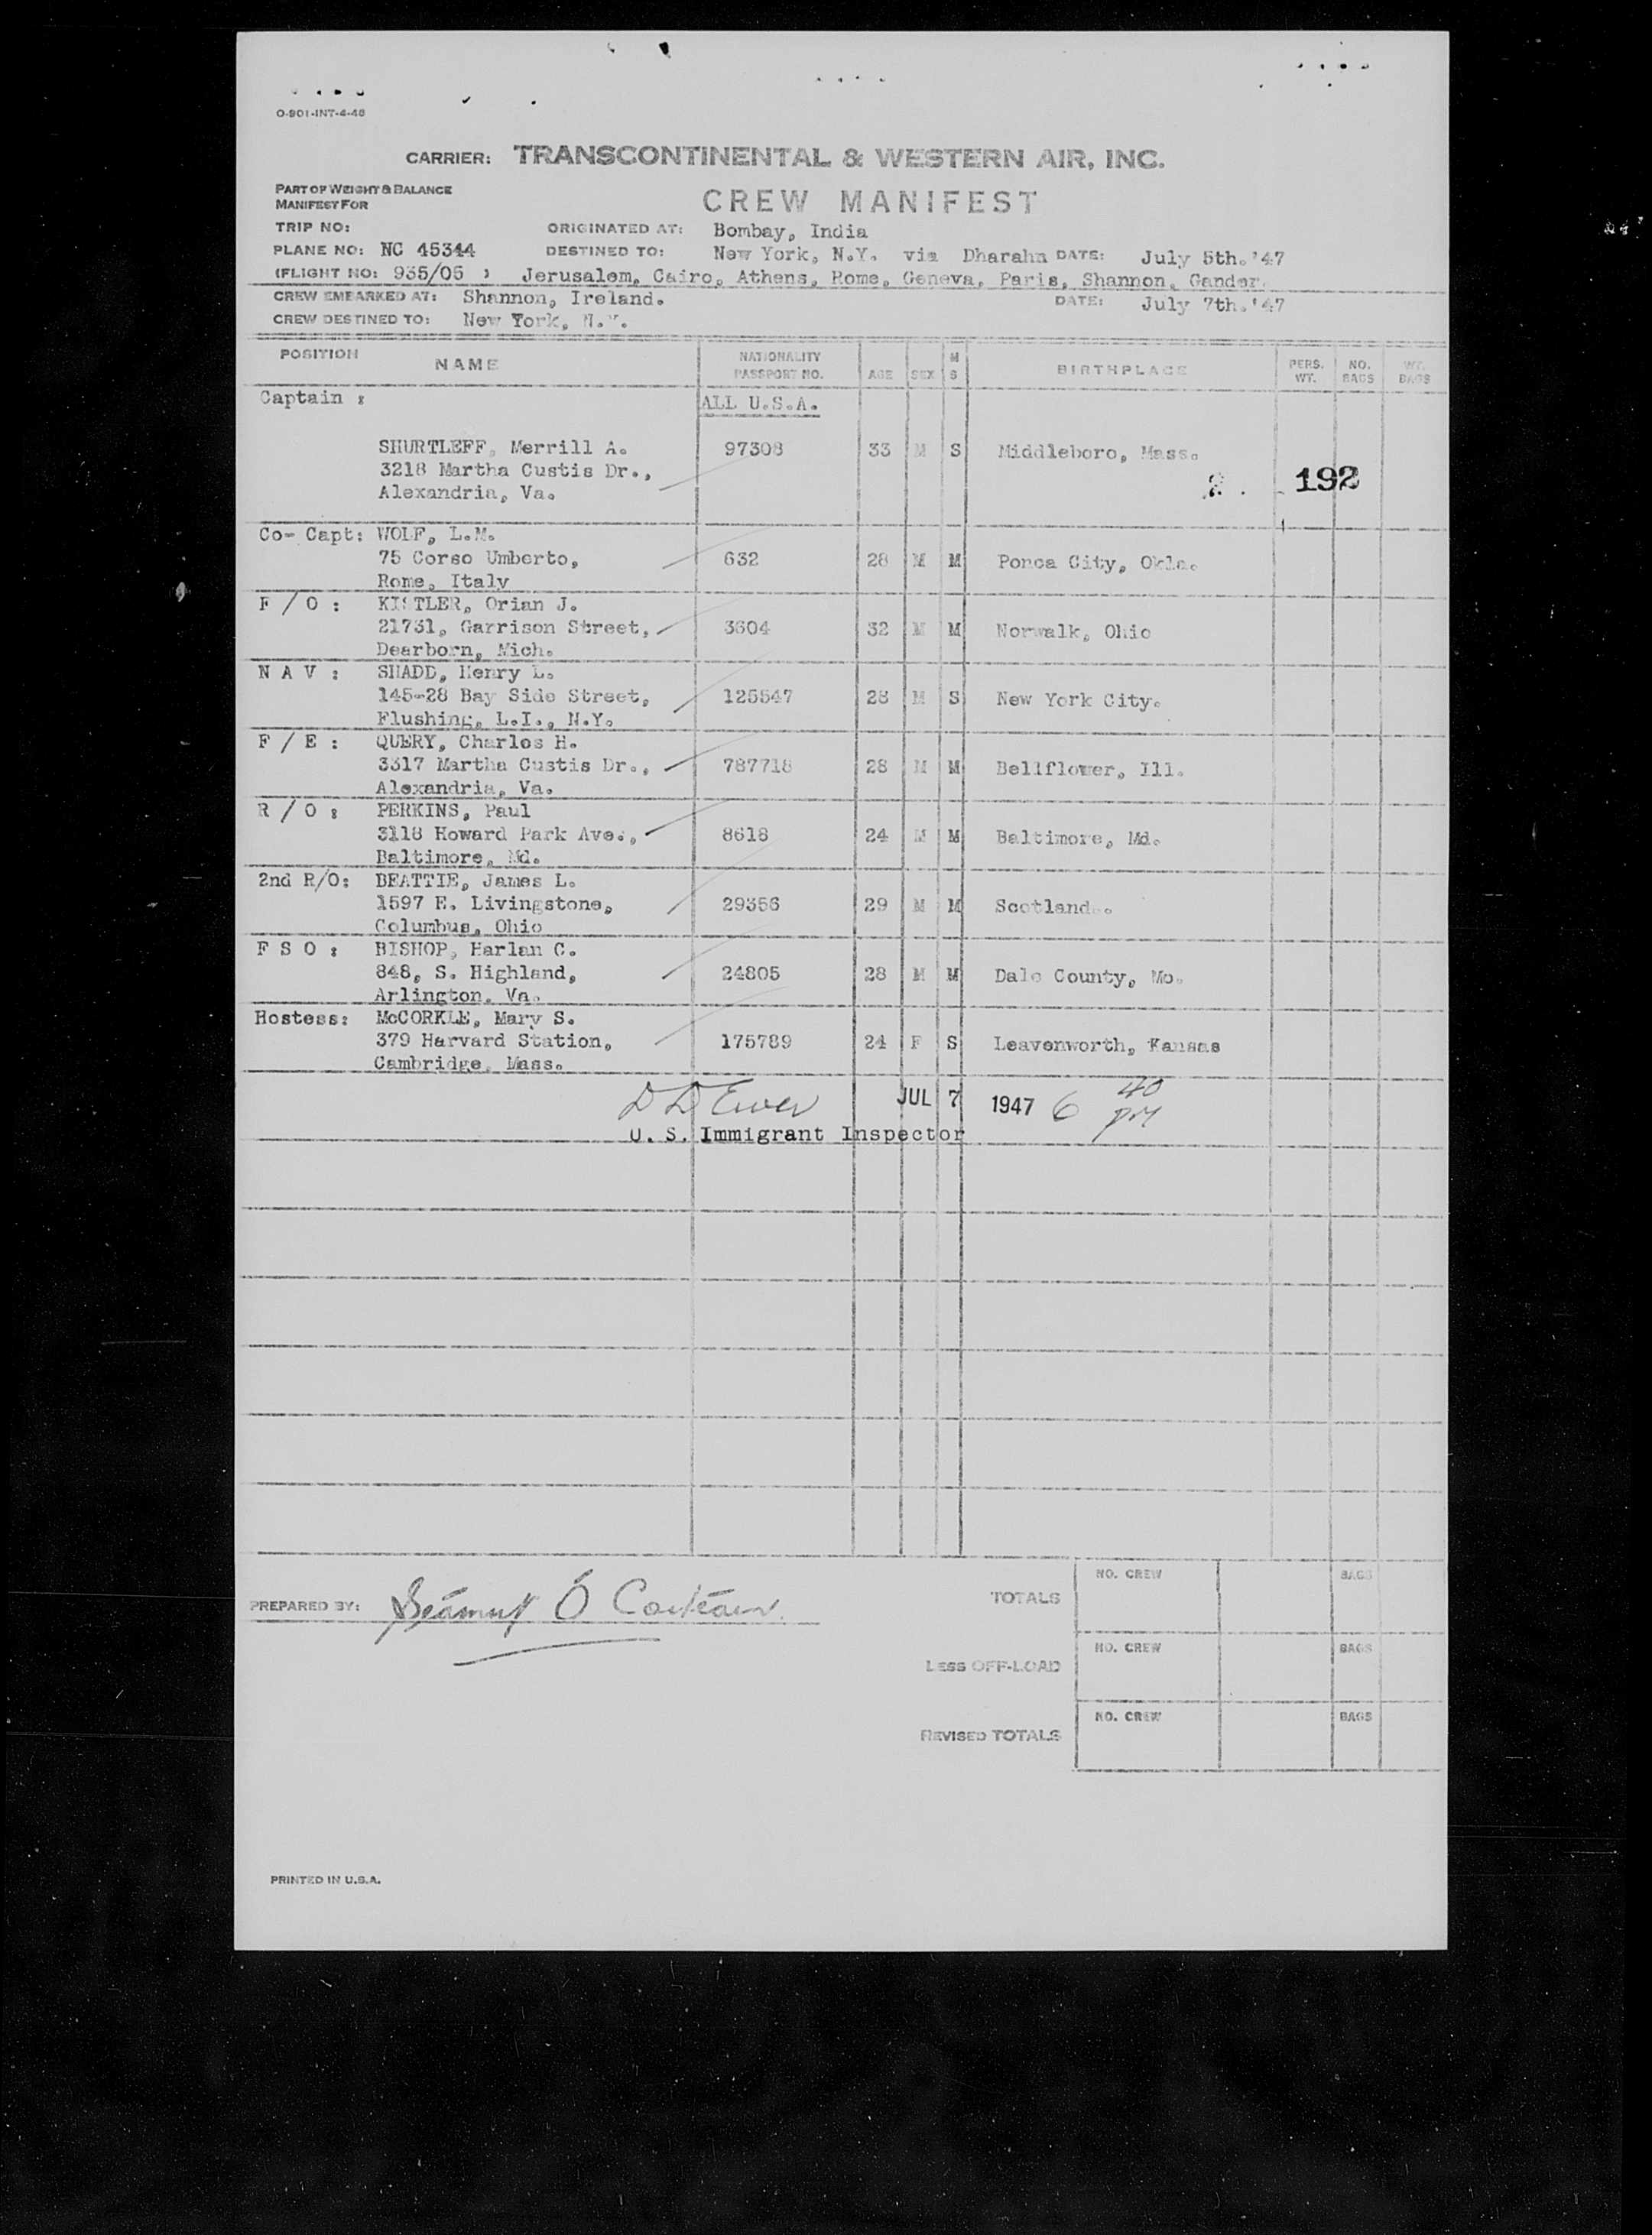 O-901-INT-4-46
CARRIER: TRANSCONTINENTAL & WESTERN AIR, INC.
PART OF WEIGHT & BALANCE
MANIFEST FOR
CREW MANIFEST
TRIP NO: ORIGINATED AT: Bombay, India
PLANE NO: NC 45344 DESTINED TO: New York, N.Y. via Dharahn DATE: July 5th.'47
(FLIGHT NO: 935/05 ) Jerusalem, Cairo, Athens, Rome, Geneva, Paris, Shannon, Gander.
CREW EMBARKED AT: Shannon, Ireland. DATE: July 7th.'47
CREW DESTINED TO: New York, N.Y.
POSITION NAME NATIONALITY PASSPORT NO. AGE SEX M S BIRTHPLACE PERS. WT. NO. BAGS WT. BAGS
Captain : ALL U.S.A.
SHURTLEFF, Merrill A. 97308 33 M S Middleboro, Mass.
3218 Martha Custis Dr.,
Alexandria, Va. 2. 192
Co- Capt: WOLF, L.M.
75 Corso Umberto, 632 28 M M Ponca City, Okla.
Rome, Italy
F / O : KISTLER, Orian J.
21731, Garrison Street, 3604 32 M M Norwalk, Ohio
Dearborn, Mich.
N A V : SHADD, Henry L.
145-28 Bay Side Street, 125547 28 M S New York City.
Flushing, L.I., N.Y.
F / E : QUERY, Charles H.
3317 Martha Custis Dr., 787718 28 M M Bellflower, Ill.
Alexandria, Va.
R / O : PERKINS, Paul
3118 Howard Park Ave., 8618 24 M M Baltimore, Md.
Baltimore, Md.
2nd R/O: BEATTIE, James L.
1597 E. Livingstone, 29356 29 M M Scotland.
Columbus, Ohio
F S O : BISHOP, Harlan C.
848, S. Highland, 24805 28 M M Dale County, Mo.
Arlington, Va.
Hostess: McCORKLE, Mary S.
379 Harvard Station, 175789 24 F S Leavenworth, Kansas
Cambridge, Mass.
JUL 7 1947 6 40 PM
U. S. Immigrant Inspector
PREPARED BY: Séamus Ó
TOTALS NO. CREW BAGS
LESS OFF-LOAD NO. CREW BAGS
REVISED TOTALS NO. CREW BAGS
PRINTED IN U.S.A.